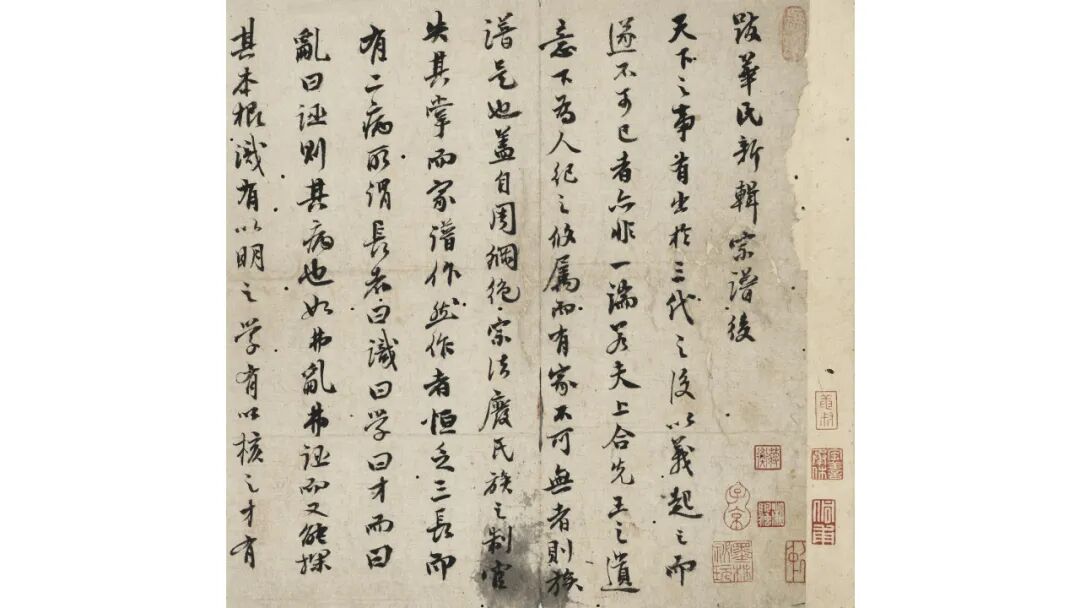 跋華氏新輯宗譜後
天下之事有出於三代之後以義起之而
遂不可已者亦非一端若夫上合先王之遺
意下為人紀之攸屬而有家不可無者則族
譜是也蓋自周綱絕宗法廢氏族之制官
失其掌而家譜作然作者恒乏三長而
有二病所謂長者曰識曰学曰才而曰
亂曰誣則其病也如弗亂弗誣而又能探
其本根識有以明之学有以核之才有
子京
墨林秘玩